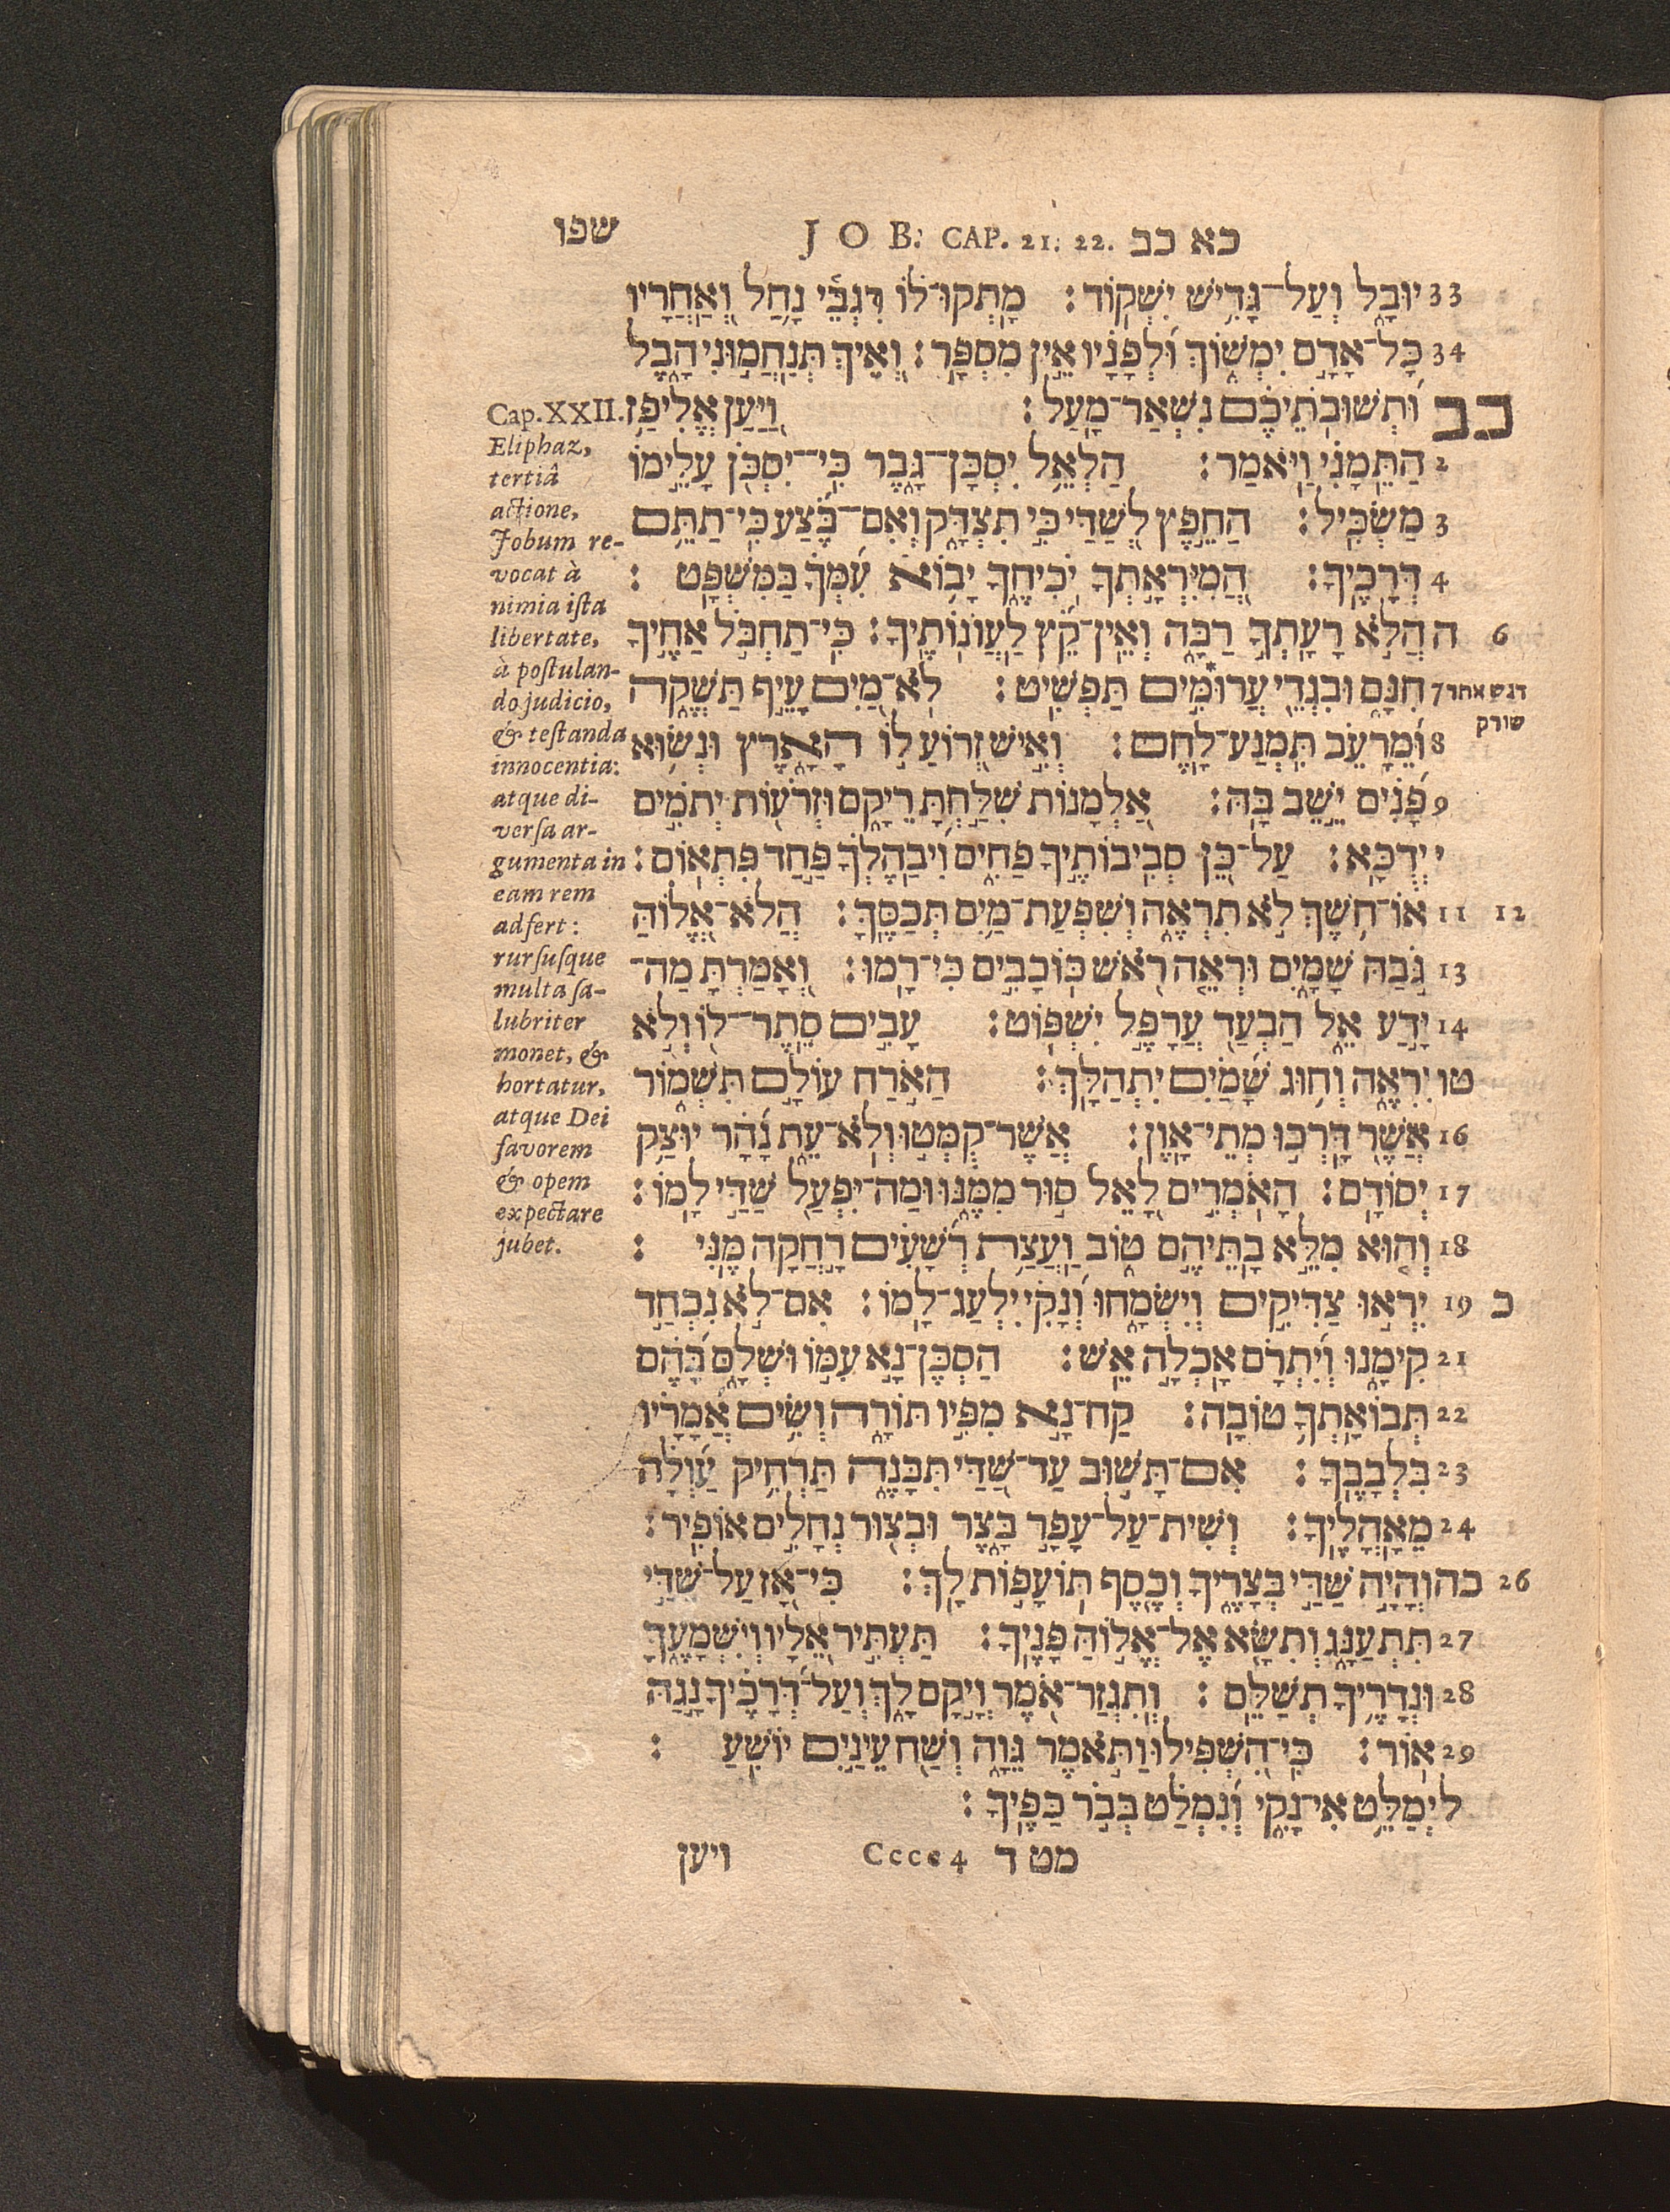 שפו J O B. CAP. 21. 22. כא כב
33 יוּבָל וְעַל־גָּדִישׁ יִשְׁקוֹד׃ מָתְקוּ־לוֹ רִגְבֵי נָחַל וְאַחֲרָיו
34 כָּל־אָדָם יִמְשׁוֹךְ וּלְפָנָיו אֵין מִסְפָּר׃ וְאֵיךְ תְּנַחֲמוּנִי הָבֶל
כב וּתְשׁוּבֹתֵיכֶם נִשְׁאַר־מָעַל׃ וַיַּעַן אֱלִיפַז
2 הַתֵּמָנִי וַיֹּאמַר׃ הַלְאֵל יִסְכָּן־גָּבֶר כִּי־יִסְכֹּן עָלֵימוֹ
3 מַשְׂכִּיל׃ הַחֵפֶץ לְשַׁדַּי כִּי תִצְדָּק וְאִם־בֶּצַע כִּי־תַתֵּם
4 דְּרָכֶיךָ׃ הֲמִיִּרְאָתְךָ יֹכִיחֶךָ יָבוֹא עִמְּךָ בַּמִּשְׁפָּט׃
6 ה הֲלֹא רָעָתְךָ רַבָּה וְאֵין־קֵץ לַעֲוֹנוֹתֶיךָ׃ כִּי־תַחְבֹּל אַחֶיךָ
7 חִנָּם וּבִגְדֵי עֲרוּמִּים תַּפְשִׁיט׃ לֹא־מַיִם עָיֵף תַּשְׁקֶה
8 וּמֵרָעֵב תִּמְנַע־לָחֶם׃ וְאִישׁ זְרוֹעַ לוֹ הָאָרֶץ וּנְשׂוּא
9 פָנִים יֵשֶׁב בָּהּ׃ אַלְמָנוֹת שִׁלַּחְתָּ רֵיקָם וּזְרֹעוֹת יְתֹמִים
י יְדֻכָּא׃ עַל־כֵּן סְבִיבוֹתֶיךָ פַחִים וִיבַהֶלְךָ פַּחַד פִּתְאוֹם׃
11 12 אוֹ־חֹשֶׁךְ לֹא תִרְאֶה וְשִׁפְעַת־מַיִם תְּכַסֶּךָּ׃ הֲלֹא־אֱלוֹהַּ
13 גֹּבַהּ שָׁמָיִם וּרְאֵה רֹאשׁ כּוֹכָבִים כִּי־רָמּוּ׃ וְאָמַרְתָּ מַה־
14 יָּדַע אֵל הַבְעַד עֲרָפֶל יִשְׁפּוֹט׃ עָבִים סֵתֶר־לוֹ וְלֹא
טו יִרְאֶה וְחוּג שָׁמַיִם יִתְהַלָּךְ׃ הַאֹרַח עוֹלָם תִּשְׁמוֹר
16 אֲשֶׁר דָּרְכוּ מְתֵי־אָוֶן׃ אֲשֶׁר־קֻמְּטוּ וְלֹא־עֵת נָהָר יוּצַק
17 יְסוֹדָם׃ הָאֹמְרִים לָאֵל סוּר מִמֶּנּוּ וּמַה־יִּפְעַל שַׁדַּי לָמוֹ׃
18 וְהוּא מִלֵּא בָתֵּיהֶם טוֹב וַעֲצַת רְשָׁעִים רָחֲקָה מֶנִּי׃
כ 19 יִרְאוּ צַדִּיקִים וְיִשְׂמָחוּ וְנָקִי יִלְעַג־לָמוֹ׃ אִם־לֹא נִכְחַד
21 קִימָנוּ וְיִתְרָם אָכְלָה אֵשׁ׃ הַסְכֶּן־נָא עִמּוֹ וּשְׁלָם בָּהֶם
22 תְּבוֹאָתְךָ טוֹבָה׃ קַח־נָא מִפִּיו תּוֹרָה וְשִׂים אֲמָרָיו
23 בִּלְבָבֶךָ׃ אִם־תָּשׁוּב עַד־שַׁדַּי תִּבָּנֶה תַּרְחִיק עַוְלָה
24 מֵאָהֳלֶיךָ׃ וְשִׁית־עַל־עָפָר בָּצֶר וּבְצוּר נְחָלִים אוֹפִיר׃
26 כה וְהָיָה שַׁדַּי בְּצָרֶיךָ וְכֶסֶף תּוֹעָפוֹת לָךְ׃ כִּי־אָז עַל־שַׁדַּי
27 תִּתְעַנָּג וְתִשָּׂא אֶל־אֱלוֹהַּ פָּנֶיךָ׃ תַּעְתִּיר אֵלָיו וְיִשְׁמָעֶךָּ
28 וּנְדָרֶיךָ תְשַׁלֵּם׃ וְתִגְזַר־אֹמֶר וְיָקָם לָךְ וְעַל־דְּרָכֶיךָ נָגַהּ
29 אוֹר׃ כִּי־הִשְׁפִּילוּ וַתֹּאמֶר גֵּוָה וְשַׁח עֵינַיִם יוֹשִׁעַ׃
ל יְמַלֵּט אִי־נָקִי וְנִמְלַט בְּבֹר כַּפֶּיךָ׃
מט ד Cccc 4 ויען
דגש אחר
שורק
Cap. XXII.
Eliphaz,
tertiâ
actione,
Jobum re-
vocat à
nimia ista
libertate,
à postulan-
do judicio,
& testanda
innocentia:
atque di-
versa ar-
gumenta in
eam rem
adfert:
rursusque
multa sa-
lubriter
monet, &
hortatur,
atque Dei
favorem
& opem
expectare
jubet.